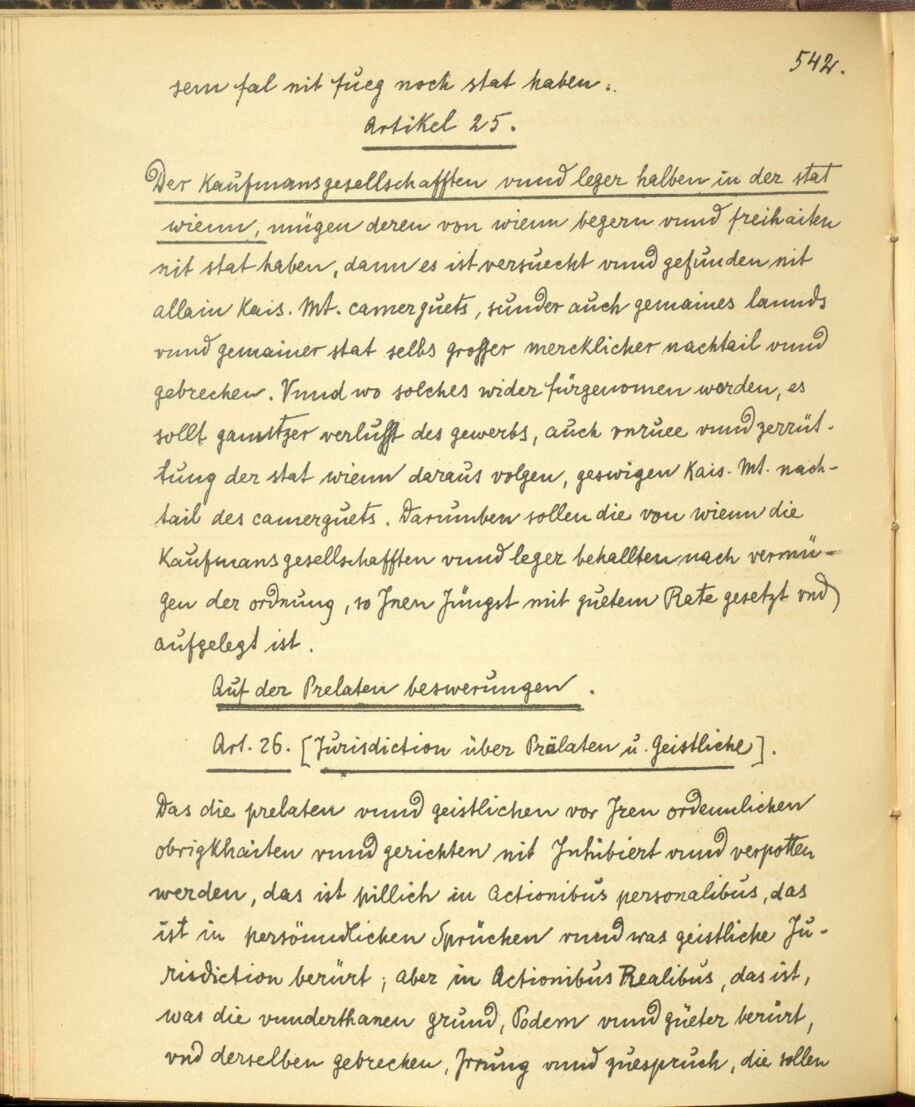 542.
sem fal nit fueg noch stat haben.
Artikel 25.
Der Kaufmansgesellschafften vnnd leger halben in der stat
wienn, mügen deren von wienn begern vnnd freihaiten
nit stat haben, dann es ist versuecht vnnd gefunden nit
allain Kais. Mt. camerguets, sunder auch gemaines lannds
vnnd gemainer stat selbs grosser mercklicher nachtail vnnd
gebrechen. Vnnd wo solches wider fürgenomen werden, es
sollt ganntzer verlusst des gewerbs, auch vnruee vnnd zerrüt-
tung der stat wienn daraus volgen, geswigen Kais. Mt. nach-
tail des camerguets. Darumben sollen die von wienn die
Kaufmansgesellschafften vnnd leger behallten nach vermü-
gen der ordnung, so Jnen Jüngst mit guetem Rate gesetzt vnd
aufgelegt ist.
Auf der Prelaten beswerungen.
Art. 26. [Jurisdiction über Prälaten u. Geistliche].
Das die prelaten vnnd geistlichen vor Jren ordennlichen
obrigkhaiten vnnd gerichten nit Inhibiert vnnd verpotten
werden, das ist pillich in Actionibus personalibus, das
ist in persönndlichen Sprüchen vnnd was geistliche Ju-
risdiction berürt; aber in Actionibus Realibus, das ist,
was die vnnderthanen grund, Podem vnnd güeter berürt,
vnd derselben gebrechen, Jrrung vnnd zuespruch, die sollen